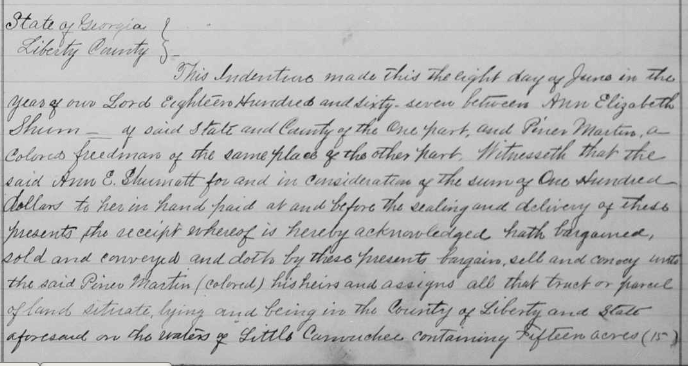 State of Georgia }
Liberty County } -
This Indenture made this the eight day of June in the
year of our Lord Eighteen Hundred and sixty-seven between Ann Elizabeth
Shum — of said State and County of the One part, and Piner Martin, a
colored freedman of the same place of the other part. Witnesseth that the
said Ann E. Shumatt for and in consideration of the sum of One Hundred
dollars to her in hand paid at and before the sealing and delivery of these
presents the receipt whereof is hereby acknowledged hath bargained,
sold and conveyed and doth by these presents bargain, sell and convey unto
the said Piner Martin (colored) his heirs and assigns all that tract or parcel
of land situate, lying and being in the County of Liberty and State
aforesaid on the waters of Little Canuchee containing Fifteen acres (15)